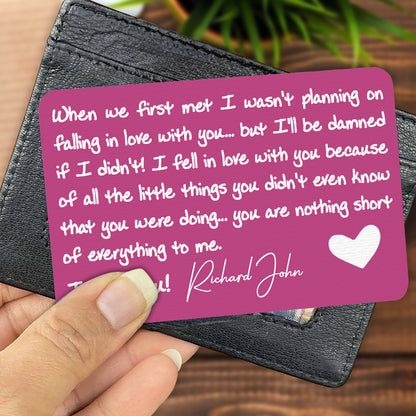 When we first met I wasn't planning on
falling in love with you... but I'll be damned
if I didn't! I fell in love with you because
of all the little things you didn't even know
that you were doing... you are nothing short
of everything to me.
Richard John